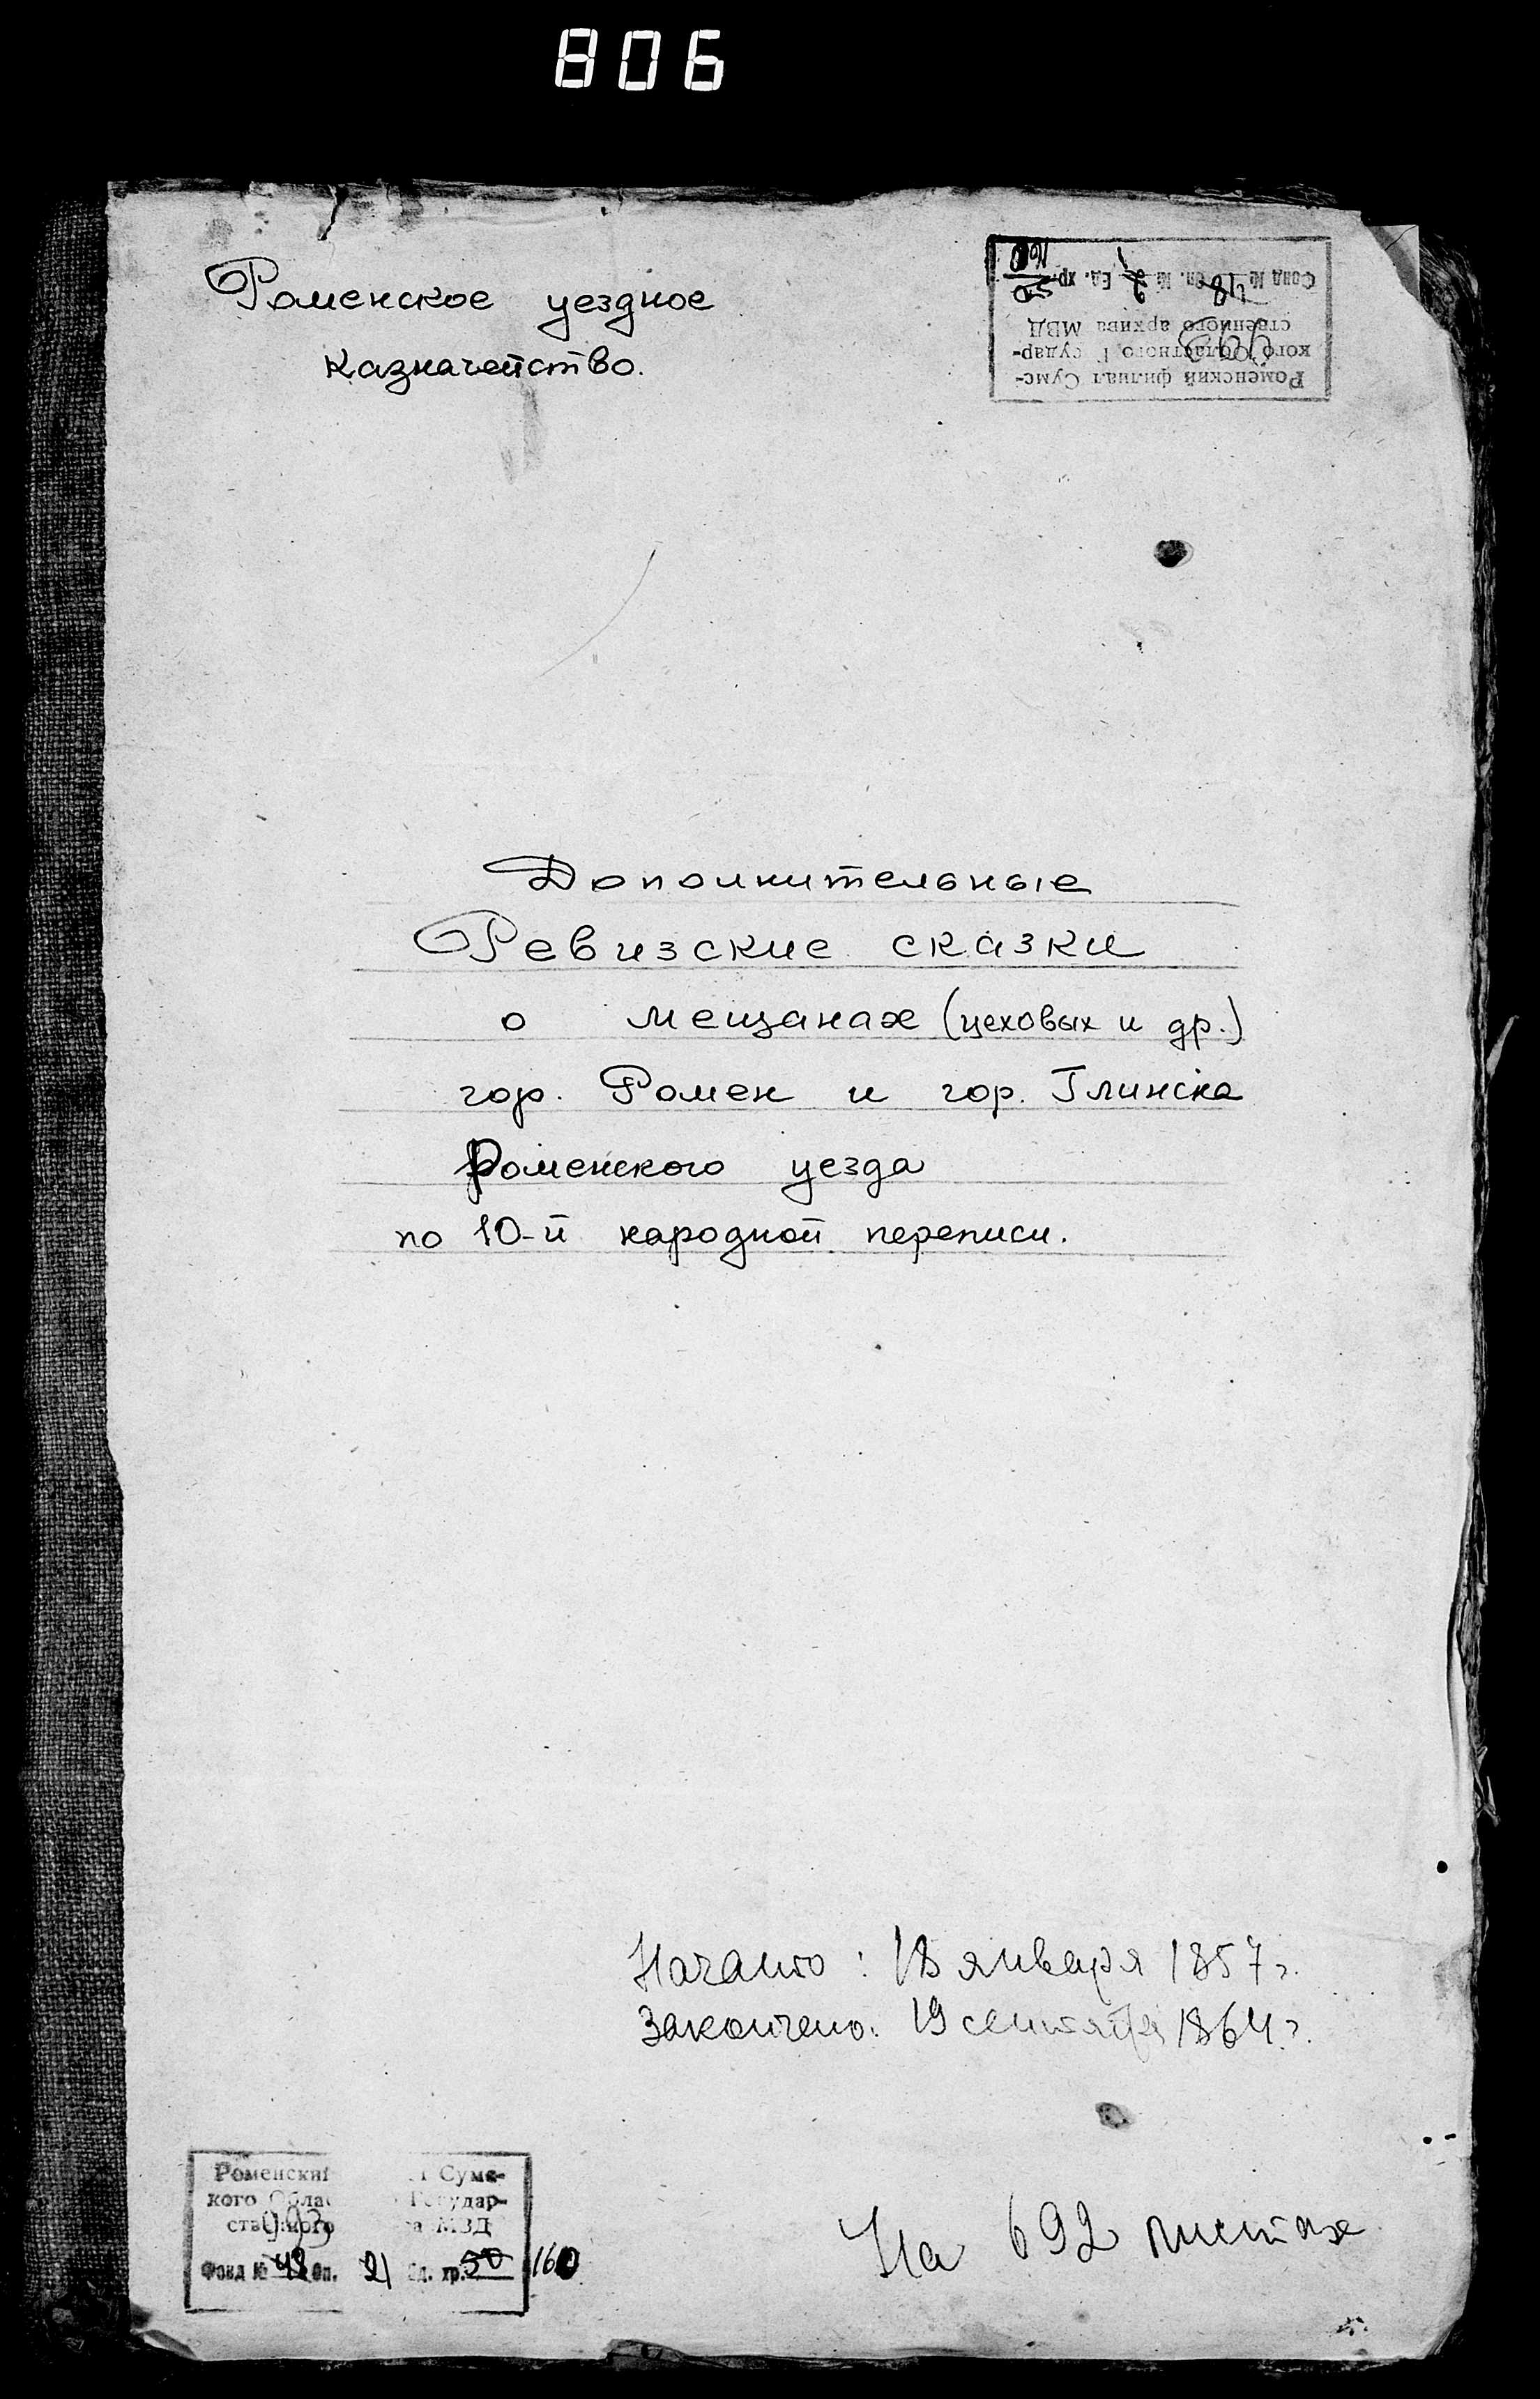 806
Роменское уездное
казначейство.
Роменский филиал Сумс-
кого Областного Государ-
ственного архива МВД
993
Фонд № 48 Оп. № 2 Ед. хр. 50
160
Дополнительные
Ревизские сказки
о мещанах (цеховых и др.)
гор. Ромен и гор. Глинска
Роменского уезда
по 10-й народной переписи.
Начато: 18 января 1857 г.
Закончено: 19 сентября 1864 г.
Роменский Сумс-
кого Облас Государ-
ственного МВД
993
Фонд № Оп. 21 Ед. хр. 50 160
На 692 листах